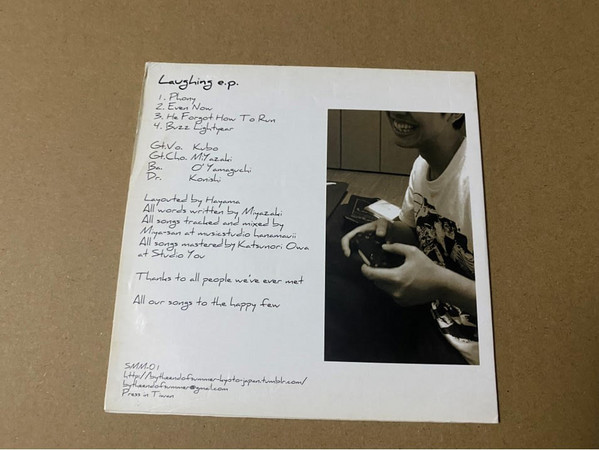 Laughing e.p.
1. Phony
2. Even Now
3. He Forgot How To Run
4. Buzz Lightyear
Gt.Vo. Kubo
Gt.Cho. MiYazaki
Ba. O'Yamaguchi
Dr. Konishi
Layouted by Hayama
All words written by Miyazaki
All songs tracked and mixed by
Miya-san at musicstudio hanamauii
All songs mastered by Katsunori Owa
at Studio You
Thanks to all people we've ever met
All our songs to the happy few
SMM-01
http://bytheendofsummer-kyoto-japan.tumblr.com/
bytheendofsummer@gmail.com
Press in Tiwan